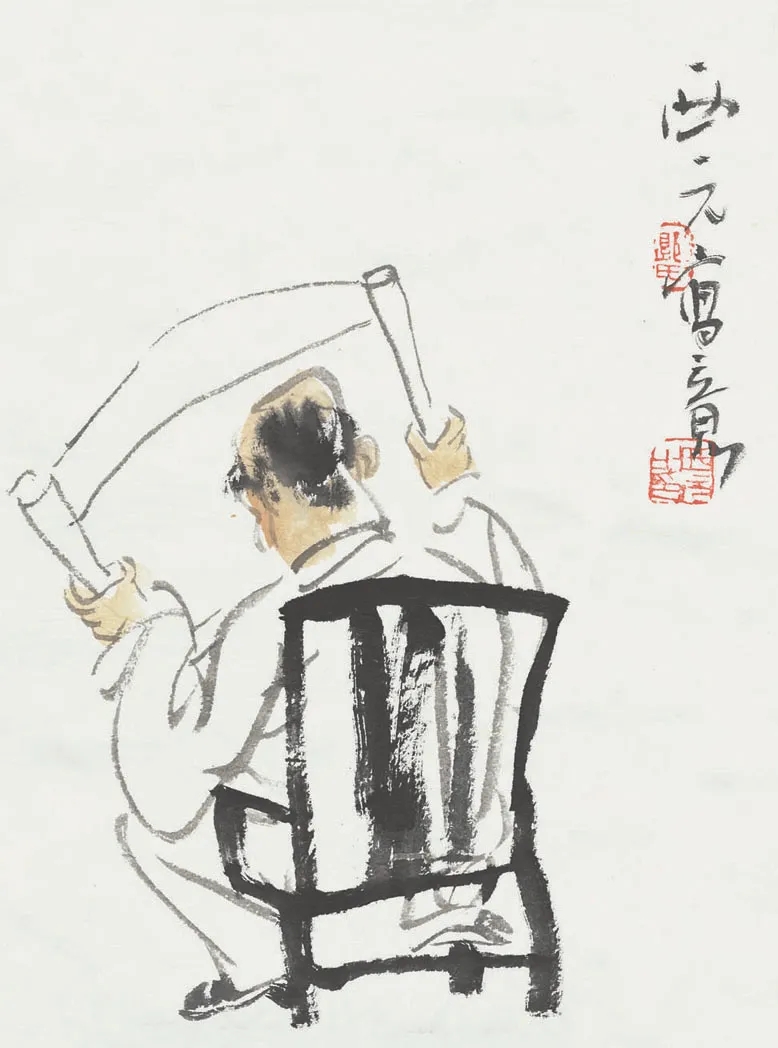 西元寫意